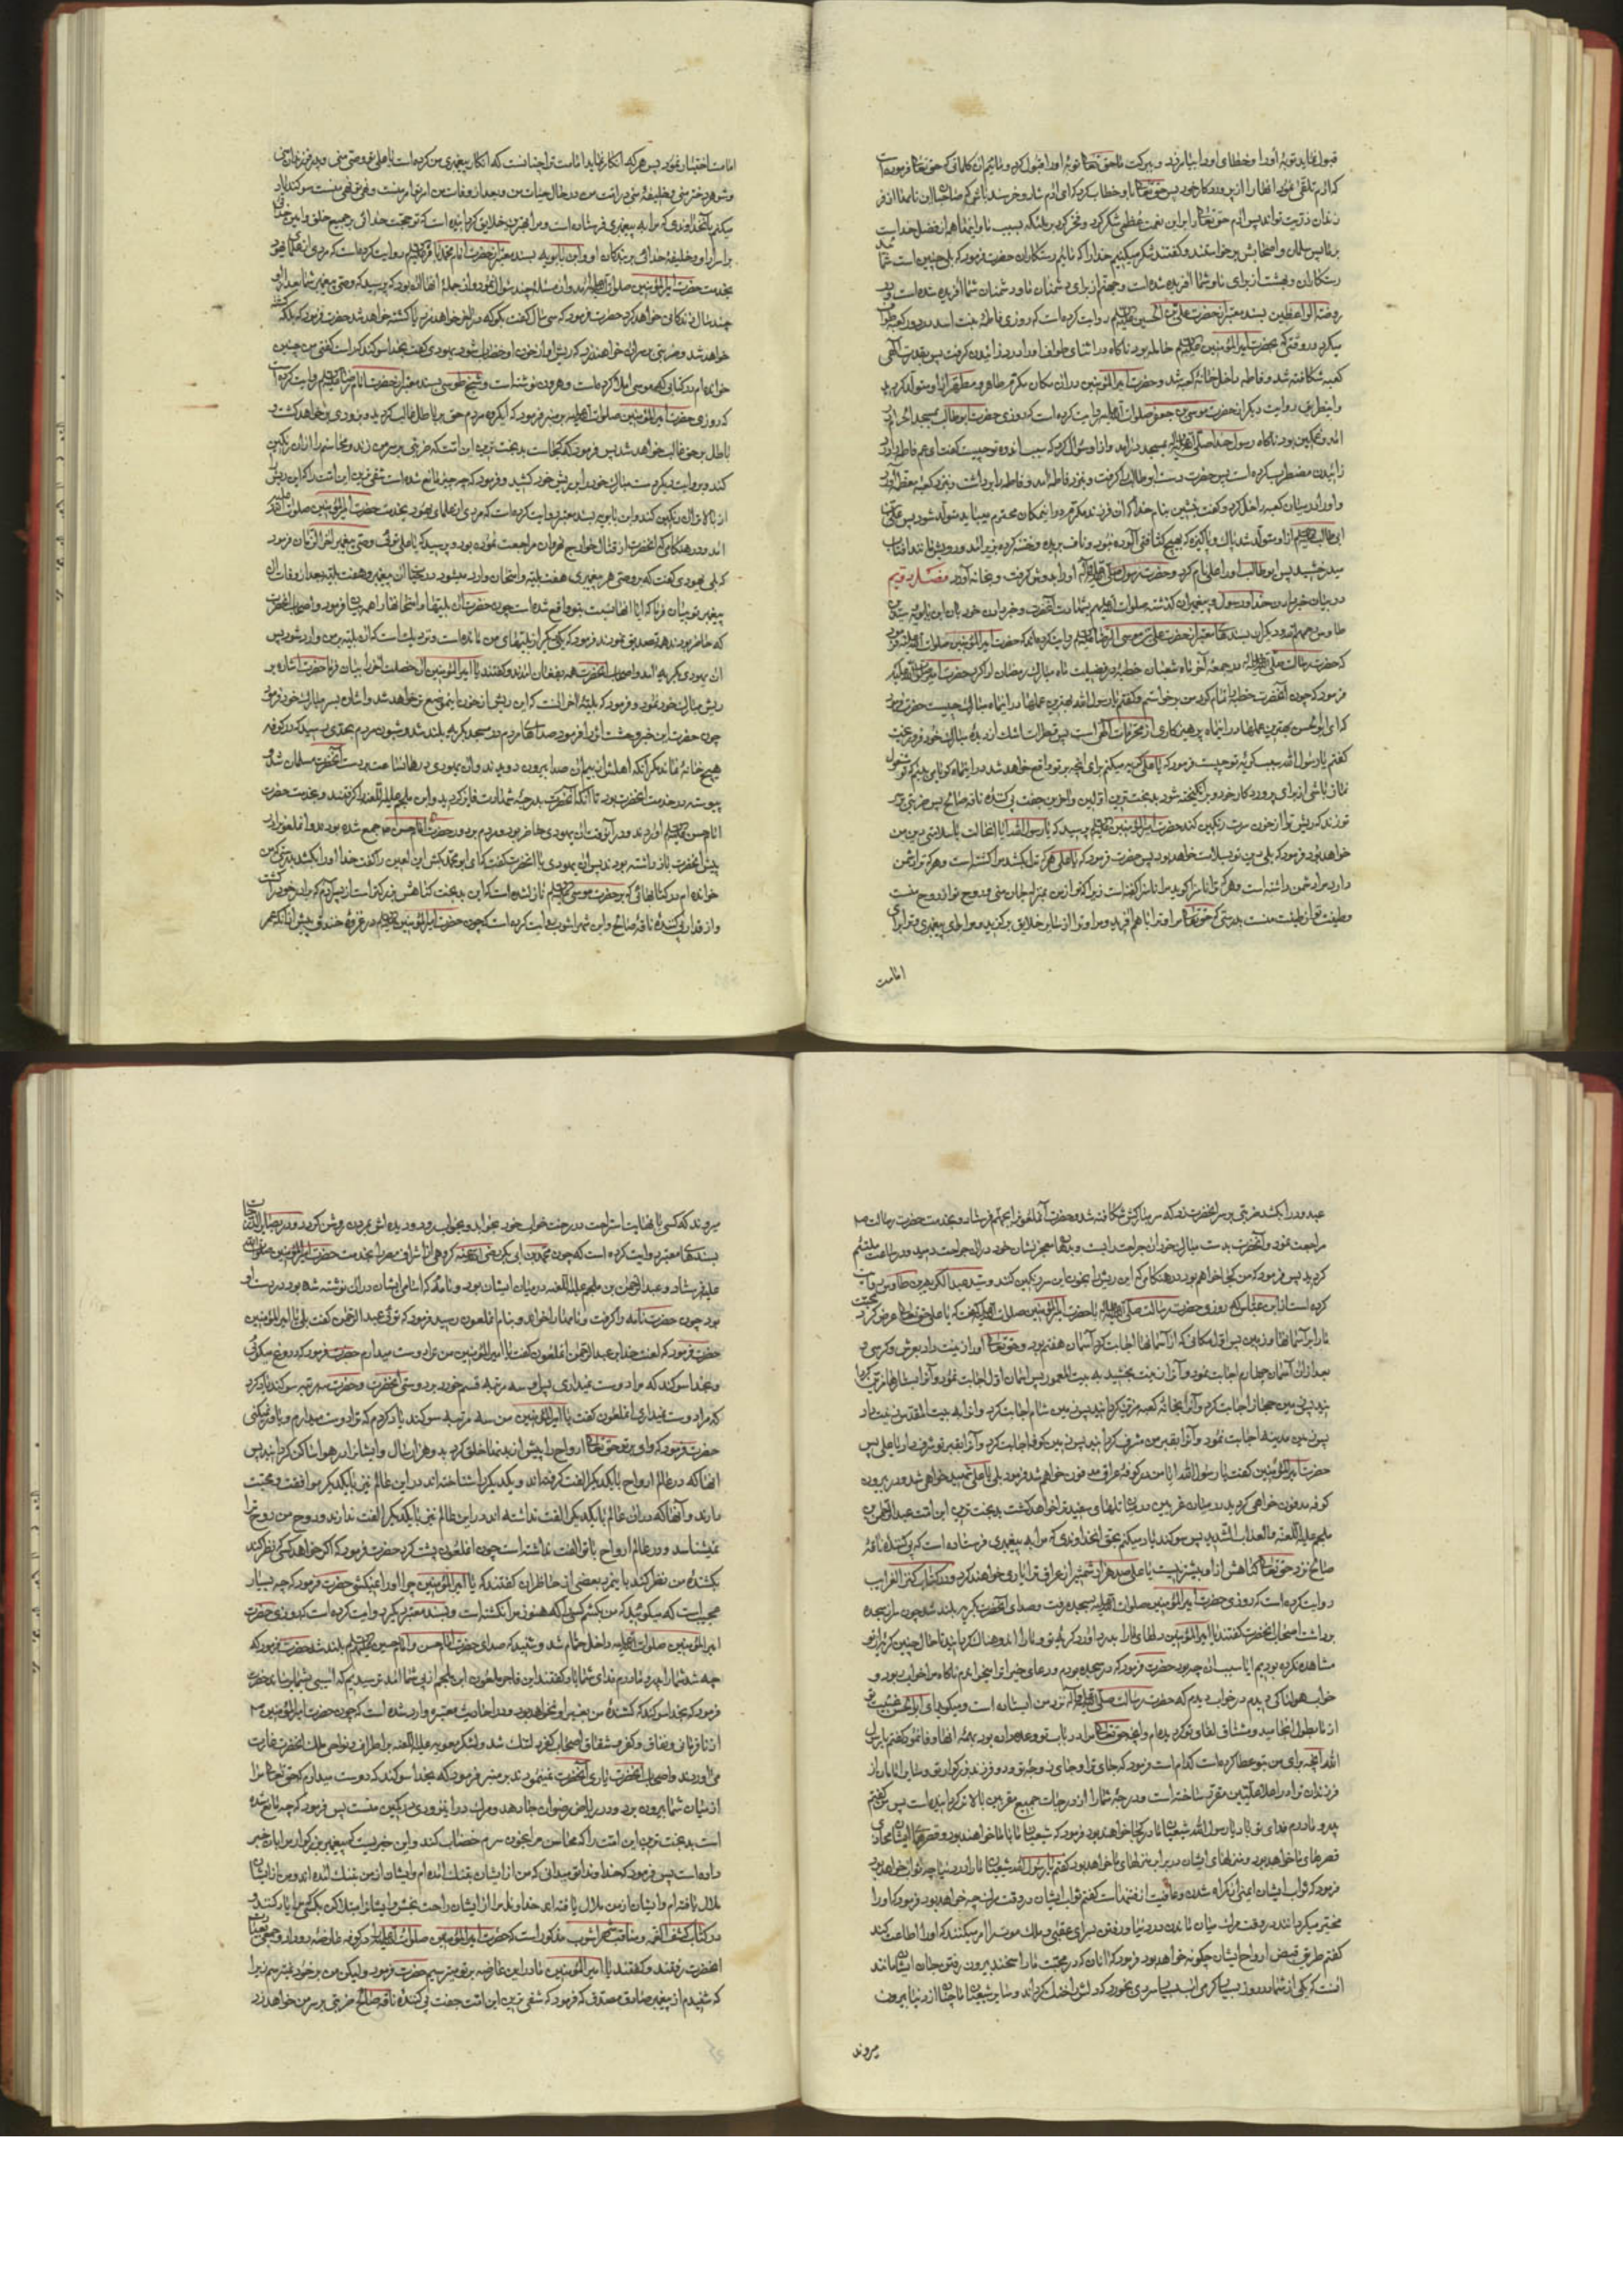 قبول نماید توبهٔ او را و خطای او را بیامرزد و ببرکت ما حق تعالی توبهٔ او را قبول کرد و مائیم آن کلماتی که حق تعالی فرموده است
که آدم تلقی نمود آنها را از پروردگار خود پس حق تعالی با او خطاب کرد که ای آدم شاد و خرسند باش که صاحبان این نامها از فر
زندان و ذریت تواند پس آدم حق تعالی را بر این نعمت عظمی شکر کرد و فخر کرد بر ملئکه بسبب ما و اینها همه از فضل خداست
بر ما پس سلمان و اصحابش برخواستند و گفتند شکر میکنیم خدا را که مائیم رستکاران حضرت فرمود که بلی چنین است شما
رستکارانید و بهشت از برای ما و شما آفریده شده است و جهنم از برای دشمنان ما و دشمنان شما آفریده شده است و در
روضة الواعظین بسند معتبر از حضرت علی بن الحسین روایت کرده است که روزی فاطمهٔ بنت اسد در دور کعبه طواف
میکرد در وقتی که بحضرت امیر المؤمنین حامله بود ناگاه در اثنای طواف او را درد زائیدن گرفت پس بقدرت الهی
کعبه شکافته شد و فاطمه داخل خانهٔ کعبه شد و حضرت امیر المؤمنین در آن مکان مکرم طاهر و مطهر از او متولد گردید
و ایضا بروایت دیگر از حضرت موسی بن جعفر صلوات الله علیه روایت کرده است که روزی حضرت ابوطالب بمسجد الحرام در
آمد و غمگین بود ناگاه رسول خدا صلی الله علیه و آله بمسجد درآمد و از او سؤال کرد که سبب اندوه تو چیست گفت ای عم فاطمه را درد
زائیدن مضطرب کرده است پس حضرت دست ابوطالب را گرفت و بنزد فاطمه آمد و فاطمه را برداشت و بنزد کعبه معظمه آورد
و او را در میان کعبه داخل کرد و گفت بنشین بنام خدا که آن فرزند مکرم در این مکان محترم میباید متولد شود پس علی بن
ابی طالب از او متولد شد پاک و پاکیزه که بهیچ کثافتی آلوده نبود و ناف بریده و ختنه کرده بزیر آمد و رویش مانند آفتاب
میدرخشید پس ابوطالب او را علی نام کرد و حضرت رسول صلی الله علیه و آله او را بدوش گرفت و بخانه آورد فصل دویم
در بیان خبر دادن خدا و رسول و پیغمبران گذشته صلوات الله علیهم بشهادت آنحضرت و خبر دادن خود بآن ابن بابویه و سید بن
طاوس و دیگران بسندهای معتبر از حضرت علی بن موسی الرضا روایت کرده‌اند که حضرت امیر المؤمنین صلوات الله علیه فرمود
که حضرت رسالت صلی الله علیه و آله در جمعهٔ آخر ماه شعبان خطبهٔ در فضیلت ماه مبارک رمضان ادا کرد حضرت امیر المؤمنین
فرمود که چون آنحضرت خطبه را تمام کرد من برخواستم و گفتم یا رسول الله بهترین عملها در این ماه مبارک چیست حضرت فرمود
که ای ابوالحسن بهترین عملها در این ماه پرهیزکاری از محرمات الهی است پس قطرات اشک از دیدهٔ مبارک خود فرو ریخت
گفتم یا رسول الله سبب گریهٔ تو چیست فرمود که یا علی گریه میکنم برای آنچه بر تو واقع خواهد شد در این ماه گویا می‌بینم که تو مشغول
نماز باشی از برای پروردگار خود و برانگیخته شود بدبخت‌ترین اولین و آخرین جفت پی کنندهٔ ناقهٔ صالح پس ضربتی بر سر
تو زند که ریش تو از خون سرت رنگین کند حضرت امیر المؤمنین پرسید که یا رسول الله آیا این حالت با سلامتی دین من
خواهد بود فرمود که بلی دین تو بسلامت خواهد بود پس حضرت فرمود که یا علی هر که ترا بکشد مرا کشته است و هر که ترا دشمن
دارد مرا دشمن داشته است و هر که ترا ناسزا گوید مرا ناسزا گفته است زیرا که تو از من بمنزلهٔ جان منی و روح تو از روح منست
و طینت تو از طینت منست بدرستی که حق تعالی مرا و ترا با هم آفرید و مرا و ترا از سایر خلایق برگزید و مرا برای پیغمبری و ترا برای
امامت
امامت اختیار نمود پس هر که انکار نماید امامت ترا چنانست که انکار پیغمبری من کرده است یا علی تو وصی منی و پدر فرزندان منی
و شوهر دختر منی و خلیفهٔ منی در امت من در حال حیات من و بعد از وفات من امر تو امر منست و نهی تو نهی منست سوگند یاد
میکنم بآنخداوندی که مرا به پیغمبری فرستاده است و مرا بهترین خلایق گردانیده است که تو حجت خدائی بر جمیع خلق و امین خدائی
بر اسرار او و خلیفهٔ خدائی بر بندگان او و ابن بابویه بسند معتبر از حضرت امام محمد باقر روایت کرده است که مردی از علمای یهود
بخدمت حضرت امیر المؤمنین صلوات الله علیه آمد و از مسئلهٔ چند سؤال نمود و از جملهٔ آنها آن بود که پرسید که وصی پیغمبر شما بعد از او
چند سال زندگانی خواهد کرد حضرت فرمود که سی سال گفت بگو که در آخر خواهد مرد یا کشته خواهد شد حضرت فرمود که بلکه کشته
خواهد شد و ضربتی بر سر او خواهند زد که ریش او از خون او خضاب شود یهودی گفت بخدا سوگند که راست گفتی من چنین
خوانده‌ام در کتابی که موسی املا کرده است و هرون نوشته است و شیخ طوسی بسند معتبر از حضرت امام رضا روایت کرده است
که روزی حضرت امیر المؤمنین صلوات الله علیه بر منبر فرمود که ای گروه مردم حق بر باطل غالب گردید و بزودی برخواهد گشت و
باطل بر حق غالب خواهد شد پس فرمود که کجاست بدبخت‌ترین این امت که ضربتی بر سر من زند و محاسنم را از آن رنگین
کند و بروایت دیگر دست مبارک خود را بر ریش خود کشید و فرمود که چه چیز مانع شده است شقی‌ترین این امت را که این ریش
از بالای آن رنگین کند و ابن بابویه بسند معتبر روایت کرده است که مردی از علمای یهود بخدمت حضرت امیر المؤمنین صلوات الله علیه
آمد در هنگامی که آنحضرت از قتال خوارج نهروان مراجعت نموده بود و پرسید که یا علی توئی وصی پیغمبر آخر الزمان فرمود
که بلی یهودی گفت که بر وصی هر پیغمبری هفت بلیه و امتحان وارد میشود در حیات آن پیغمبر و هفت بلیه بعد از وفات آن
که حاضر بودند همه تصدیق نمودند فرمود که یکی دیگر از بلیتهای من مانده است و نزدیک است که آن بلیه بر من وارد شود پس
آن یهودی بگریه آمد و اصحاب آنحضرت همه بفغان آمدند و گفتند یا امیر المؤمنین آن خصلت آخر را بیان فرما حضرت اشاره بر
ریش مبارک خود نمود و فرمود که بلیهٔ آخر آنست که این ریش از خون این موضع تر خواهد شد و اشاره بسر مبارک خود فرمود
چون حضرت این خبر وحشت اثر را فرمود صداهای مردم در مسجد بگریه بلند شد و شیون مردم بحدی رسید که در کوفه
هیچ خانهٔ نماند مگر آنکه اهلش از بیم آن صدا بیرون دویدند و آن یهودی در همان ساعت بر دست آنحضرت مسلمان شد و
پیوسته در خدمت آنحضرت بود تا آنکه آنحضرت بدرجهٔ شهادت فایز گردید و ابن ملجم علیه اللعنه را گرفتند و بخدمت حضرت
امام حسن آوردند و در آنوقت آن یهودی حاضر بود و مردم بر دور حضرت امام حسن جمع شده بودند و آن ملعون را در
پیش آنحضرت بازداشته بودند پس آن یهودی با آنحضرت گفت که ای ابومحمد بکش این لعین را که خدا او را بکشد بدرستی که من
خوانده‌ام در کتابهائی که بر حضرت موسی نازل شده است که این بدبخت گناهش بزرگتر است از پسر آدم که برادر خود را کشت
و از قدار پی کنندهٔ ناقهٔ صالح و ابن شهر آشوب روایت کرده است که چون حضرت امیر المؤمنین در غزوهٔ خندق پیش از آنکه عمرو
عبدود را بکشد ضربتی بر سر آنحضرت زد که سر مبارکش شکافته شد و حضرت آن ملعون را بجهنم فرستاد و بخدمت حضرت رسالت
مراجعت نمود و آنحضرت بدست مبارک خود آن جراحت را بست و بدهان معجز نشان خود در آن جراحت دمید و در ساعت ملتئم
گردید پس فرمود که من کجا خواهم بود در هنگامی که این ریش را بخون این سر رنگین کنند و سید عبدالکریم بن طاوس روایت
کرده است از ابن عباس که روزی حضرت رسالت صلی الله علیه و آله با حضرت امیر المؤمنین صلوات الله علیه گفت که یا علی حق تعالی عرض کرد محبت
ما را بر آسمانها و زمین پس اول مکانی که از آسمانها اجابت کرد آسمان هفتم بود و حق تعالی او را زینت داد بعرش و کرسی و
بعد از آن آسمان چهارم اجابت نمود و آن را زینت بخشید به بیت المعمور پس آسمان اول اجابت نمود و آن را بستارها مزین گردا
نید پس زمین حجاز اجابت کرد و آن را بخانهٔ کعبه مزین گردانید پس زمین شام اجابت کرد و آن را به بیت المقدس زینت داد
پس زمین مدینه اجابت نمود و آن را بقبر من مشرف گردانید پس زمین کوفه اجابت کرد و آن را بقبر تو شرف داد یا علی پس
حضرت امیر المؤمنین گفت یا رسول الله آیا من در کوفهٔ عراق مدفون خواهم شد فرمود بلی یا علی شهید خواهی شد و در بیرون
کوفه مدفون خواهی گردید در میان غریین و در میان تلهای سفید و ترا خواهد کشت بدبخت‌ترین این امت عبدالرحمن بن
ملجم علیه اللعنة والعذاب الشدید پس سوگند یاد میکنم بحق آنخداوندی که مرا به پیغمبری فرستاده است که پی کنندهٔ ناقهٔ
صالح نزد حق تعالی گناهش از او بیشتر نیست یا علی صد هزار شمشیر از عراق ترا یاری خواهند کرد و در کتاب کنز الغرایب
روایت کرده است که روزی حضرت امیر المؤمنین صلوات الله علیه بسجده رفت و صدای آنحضرت بگریه بلند شد چون سر از سجده
برداشت اصحاب آنحضرت گفتند یا امیر المؤمنین دلهای ما را بدرد آورد گریهٔ تو و ما را اندوهناک گردانید تا حال چنین گریه از تو
مشاهده نکرده بودیم آیا سبب آن چه بود حضرت فرمود که در سجده بودم و دعای خیرات را میخواندم ناگاه مرا خواب ربود و
خواب هولناکی دیدم در خواب دیدم که حضرت رسالت صلی الله علیه و آله نزد من ایستاده است و میگوید ای ابوالحسن غیبت تو
از ما بطول انجامید و مشتاق لقای تو گردیده‌ام و آنچه حق تعالی مرا در باب تو وعده داده بود بهمهٔ آنها وفا نمود گفتم یا رسول
الله آنچه برای من بتو عطا کرده است کدام است فرمود که جای تو و جای زوجهٔ تو و دو فرزند بزرگوار تو و سایر امامان از
فرزندان ترا در اعلا علیین مقرر ساخته است و درجهٔ شما را از درجات جمیع مقربین بالاتر گردانیده است پس من گفتم
پدر و مادرم فدای تو باد یا رسول الله شیعیان ما در کجا خواهند بود فرمود که شیعیان ما با ما خواهند بود و قصرهای ایشان محاذی
قصرهای ما خواهد بود و منزلهای ایشان در برابر منزلهای ما خواهد بود گفتم یا رسول الله شیعیان ما را در دنیا چه ثواب خواهد بود
فرمود که ثواب ایشان ایمنی از گمراه شدن و عافیت از فتنهاست گفتم ثواب ایشان در وقت مردن چه خواهد بود فرمود که او را
مخیر میگردانند در وقت مردن میان ماندن در دنیا و رفتن بسرای عقبی و ملک موت را امر میکنند که او را اطاعت کند
گفتم طریق قبض ارواح ایشان چگونه خواهد بود فرمود که آنان که در محبت ما راسخند بیرون رفتن جان ایشان مانند
آنست که یکی از شما در روز بسیار گرمی آب بسیار سردی بخورد که دلش را خنک گرداند و سایر شیعیان ما چنان از دنیا بیرون
میروند
میروند که کسی با نهایت استراحت در رخت خواب خود بخوابد و بخواب رود و دیده‌اش بمردن روشن گردد و در بصایر الدرجات
بسندهای معتبر روایت کرده است که چون محمد بن ابی بکر رضی الله عنه گروهی از اشراف مصر را بخدمت حضرت امیر المؤمنین صلوات الله
علیه فرستاد و عبدالرحمن بن ملجم علیه اللعنه در میان ایشان بود و نامهٔ که اسامی ایشان در آن نوشته شده بود در دست او
بود چون حضرت نامه را گرفت و نامها را خواند و بنام آن ملعون رسید فرمود که توئی عبدالرحمن گفت بلی یا امیر المؤمنین
حضرت فرمود که لعنت خدا بر عبدالرحمن آن ملعون گفت یا امیر المؤمنین من ترا دوست میدارم حضرت فرمود که دروغ میگوئی
و بخدا سوگند که مرا دوست نمیداری پس او سه مرتبه قسم خورد بر دوستی آنحضرت و حضرت سه مرتبه سوگند یاد کرد
که مرا دوست نمیداری آن ملعون گفت یا امیر المؤمنین من سه مرتبه سوگند یاد کردم که ترا دوست میدارم و باور نمیکنی
حضرت فرمود که وای بر تو حق تعالی ارواح را پیش از بدنها خلق کرد بدو هزار سال و ایشان را در هوا ساکن گردانید پس
آنها که در عالم ارواح با یکدیگر الفت گرفته‌اند و یکدیگر را شناخته‌اند در این عالم نیز با یکدیگر موافقت و محبت
دارند و آنها که در آن عالم با یکدیگر الفت نداشته‌اند در این عالم نیز با یکدیگر الفت ندارند و روح من روح ترا
نمیشناسد و در عالم ارواح با تو الفت نداشته است چون آن ملعون پشت کرد حضرت فرمود که اگر خواهد کسی نظر کند
بکشندهٔ من نظر کند باین مرد بعضی از حاضران گفتند که یا امیر المؤمنین چرا او را نمیکشی حضرت فرمود که چه بسیار
عجیب است که میگوئید که من بکشم کسی را که هنوز مرا نکشته است و بسند معتبر دیگر روایت کرده است که روزی حضرت
امیر المؤمنین صلوات الله علیه داخل حمام شد و شنید که صدای حضرت امام حسن و امام حسین بلند شد حضرت فرمود که
چه شد شما را پدر و مادرم فدای شما باد گفتند این فاجر ملعون ابن ملجم از پی شما آمد ترسیدیم که آسیبی بشما رساند حضرت
فرمود که بخدا سوگند که کشندهٔ من بغیر او نخواهد بود و در احادیث معتبره وارد شده است که چون حضرت امیر المؤمنین
از نافرمانی و نفاق و کفر و شقاق اصحاب کوفه دلتنگ شد و لشکر معویه علیه اللعنه بر اطراف و نواحی ملک آنحضرت غارت
می‌آوردند و اصحاب آنحضرت یاری آنحضرت نمینمودند بر منبر فرمود که بخدا سوگند که دوست میدارم که حق تعالی مرا
از میان شما بیرون برد و در ریاض رضوان جا دهد و مرگ در این زودی در کمین منست پس فرمود که چه مانع شده
است بدبخت‌ترین این امت را که محاسن مرا بخون سرم خضاب کند و این خبریست که پیغمبر بزرگوار مرا بآن خبر
داده است پس فرمود که خداوندا تو میدانی که من از ایشان بتنگ آمده‌ام و ایشان از من بتنگ آمده‌اند و من از ایشان
ملال یافته‌ام و ایشان از من ملال یافته‌اند خداوندا مرا از ایشان راحت بخش و ایشان را مبتلا کن بکسی که مرا یاد کنند و
در کتاب کشف الغمه و مناقب شهر آشوب مذکور است که حضرت امیر المؤمنین صلوات الله علیه در کوفه عارضهٔ رو داد و جمعی بعیادت
آنحضرت رفتند و گفتند یا امیر المؤمنین ما در این عارضه بر تو میترسیم حضرت فرمود ولیکن من بر خود نمیترسم زیرا
که شنیدم از پیغمبر صادق مصدق که فرمود که شقی‌ترین این امت جفت پی کنندهٔ ناقهٔ صالح ضربتی بر سر من خواهد زد